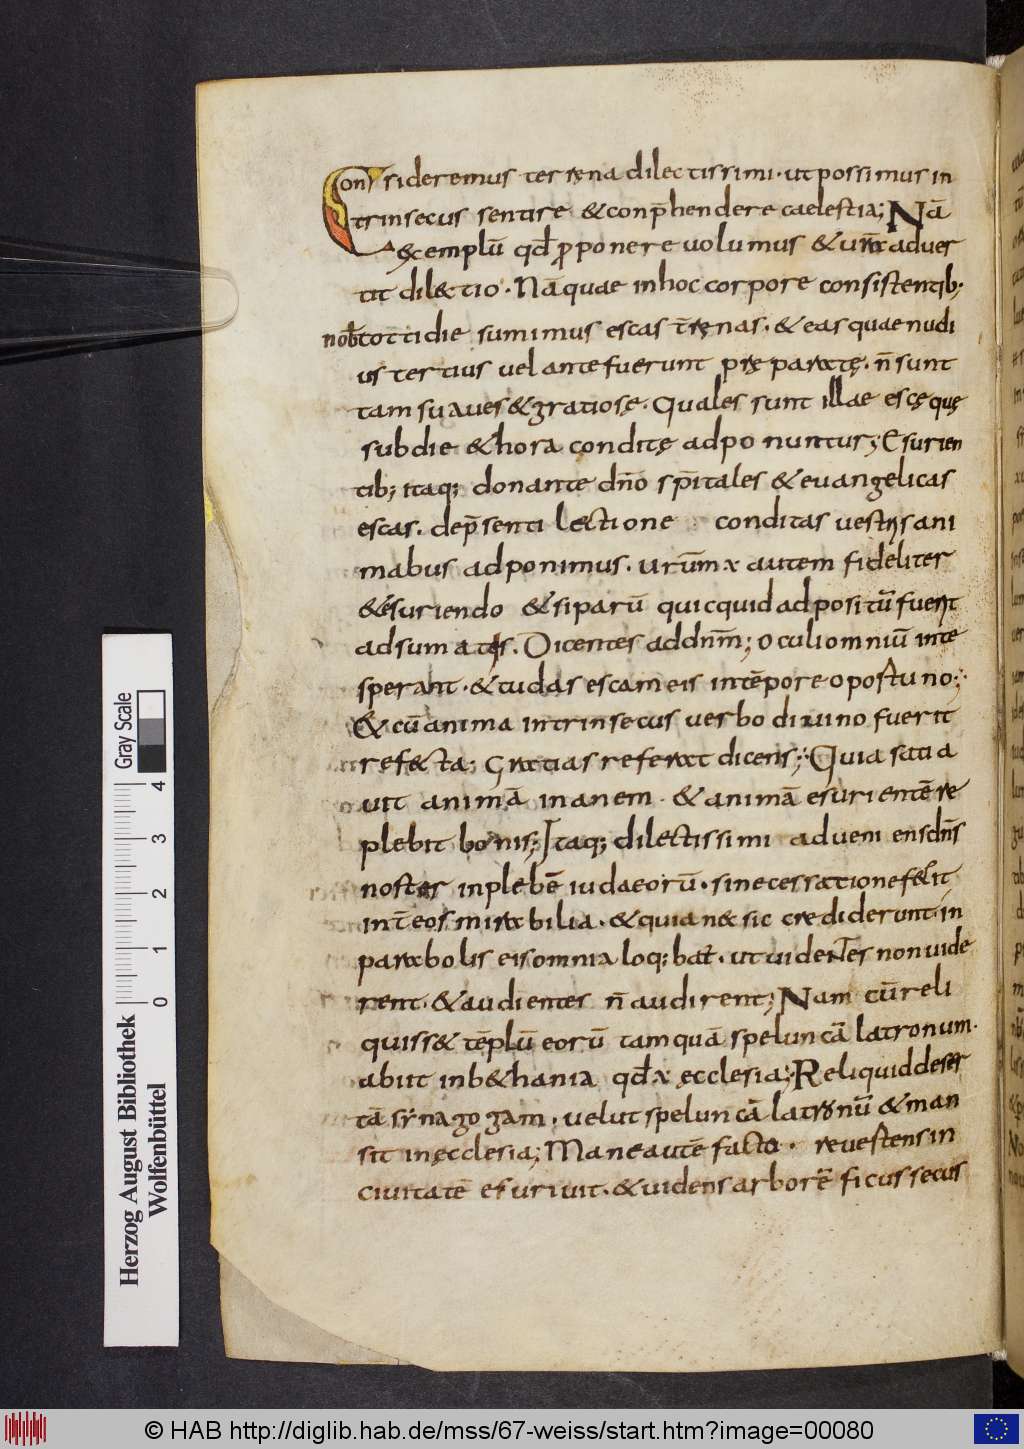 Consideremus terrena dilectissimi · ut possimus in
trinsecus sentire & conp̄hendere caelestia; Nā
& exemplū qđ proponere uolumus & ura aduer
tit dil&tio · Nā quae in hoc corpore consistentib;
nob̄ cottidie sumimus escas t̄renas · & eas quae nudi
us tertius uel ante fuerunt pręparatę · n̄ sunt
tam suaues & gratiosę · Quales sunt illae escę quę
subdie & hora conditę adponuntur; Esurien
tib; itaq; donante dn̄o sp̄itales & euangelicas
escas · dep̄senti lectione conditas uestris ani
mabus adponimus · urūm x autem fideliter
& esuriendo & siparū quicquid adpositū fuerit
adsumates · Dicentes ad dnm̄; oculi omniū in te
sperant · & tu das escam eis in tēpore oportuno;
& cū anima intrinsecus uerbo diuino fuerit
refecta; Gratias referat dicens; Quia satia
uit animā inanem · & animā esurientē re
plebit bonis; Itaq; dilectissimi adueniens dn̄s
noster in plebē iudaeorū · sine cessatione fecit
int̄ eos mirabilia · & quia nec sic crediderunt · in
parabolis eis omnia loq;bat̄ · ut uidentes non uide
rent · & audientes n̄ audirent; Nam cū reli
quiss& tēplū eorū tamquā speluncā latronum ·
abiit in b&hania qđ x ecclesia; Reliquid deser
tā synagogam · uelut speluncā latronū & man
sit in ęcclesia; Mane autē facto · reuertens in
ciuitatē esuriuit · & uidens arborē ficus secus
Gray Scale
0 1 2 3 4
Herzog August Bibliothek
Wolfenbüttel
© HAB http://diglib.hab.de/mss/67-weiss/start.htm?image=00080